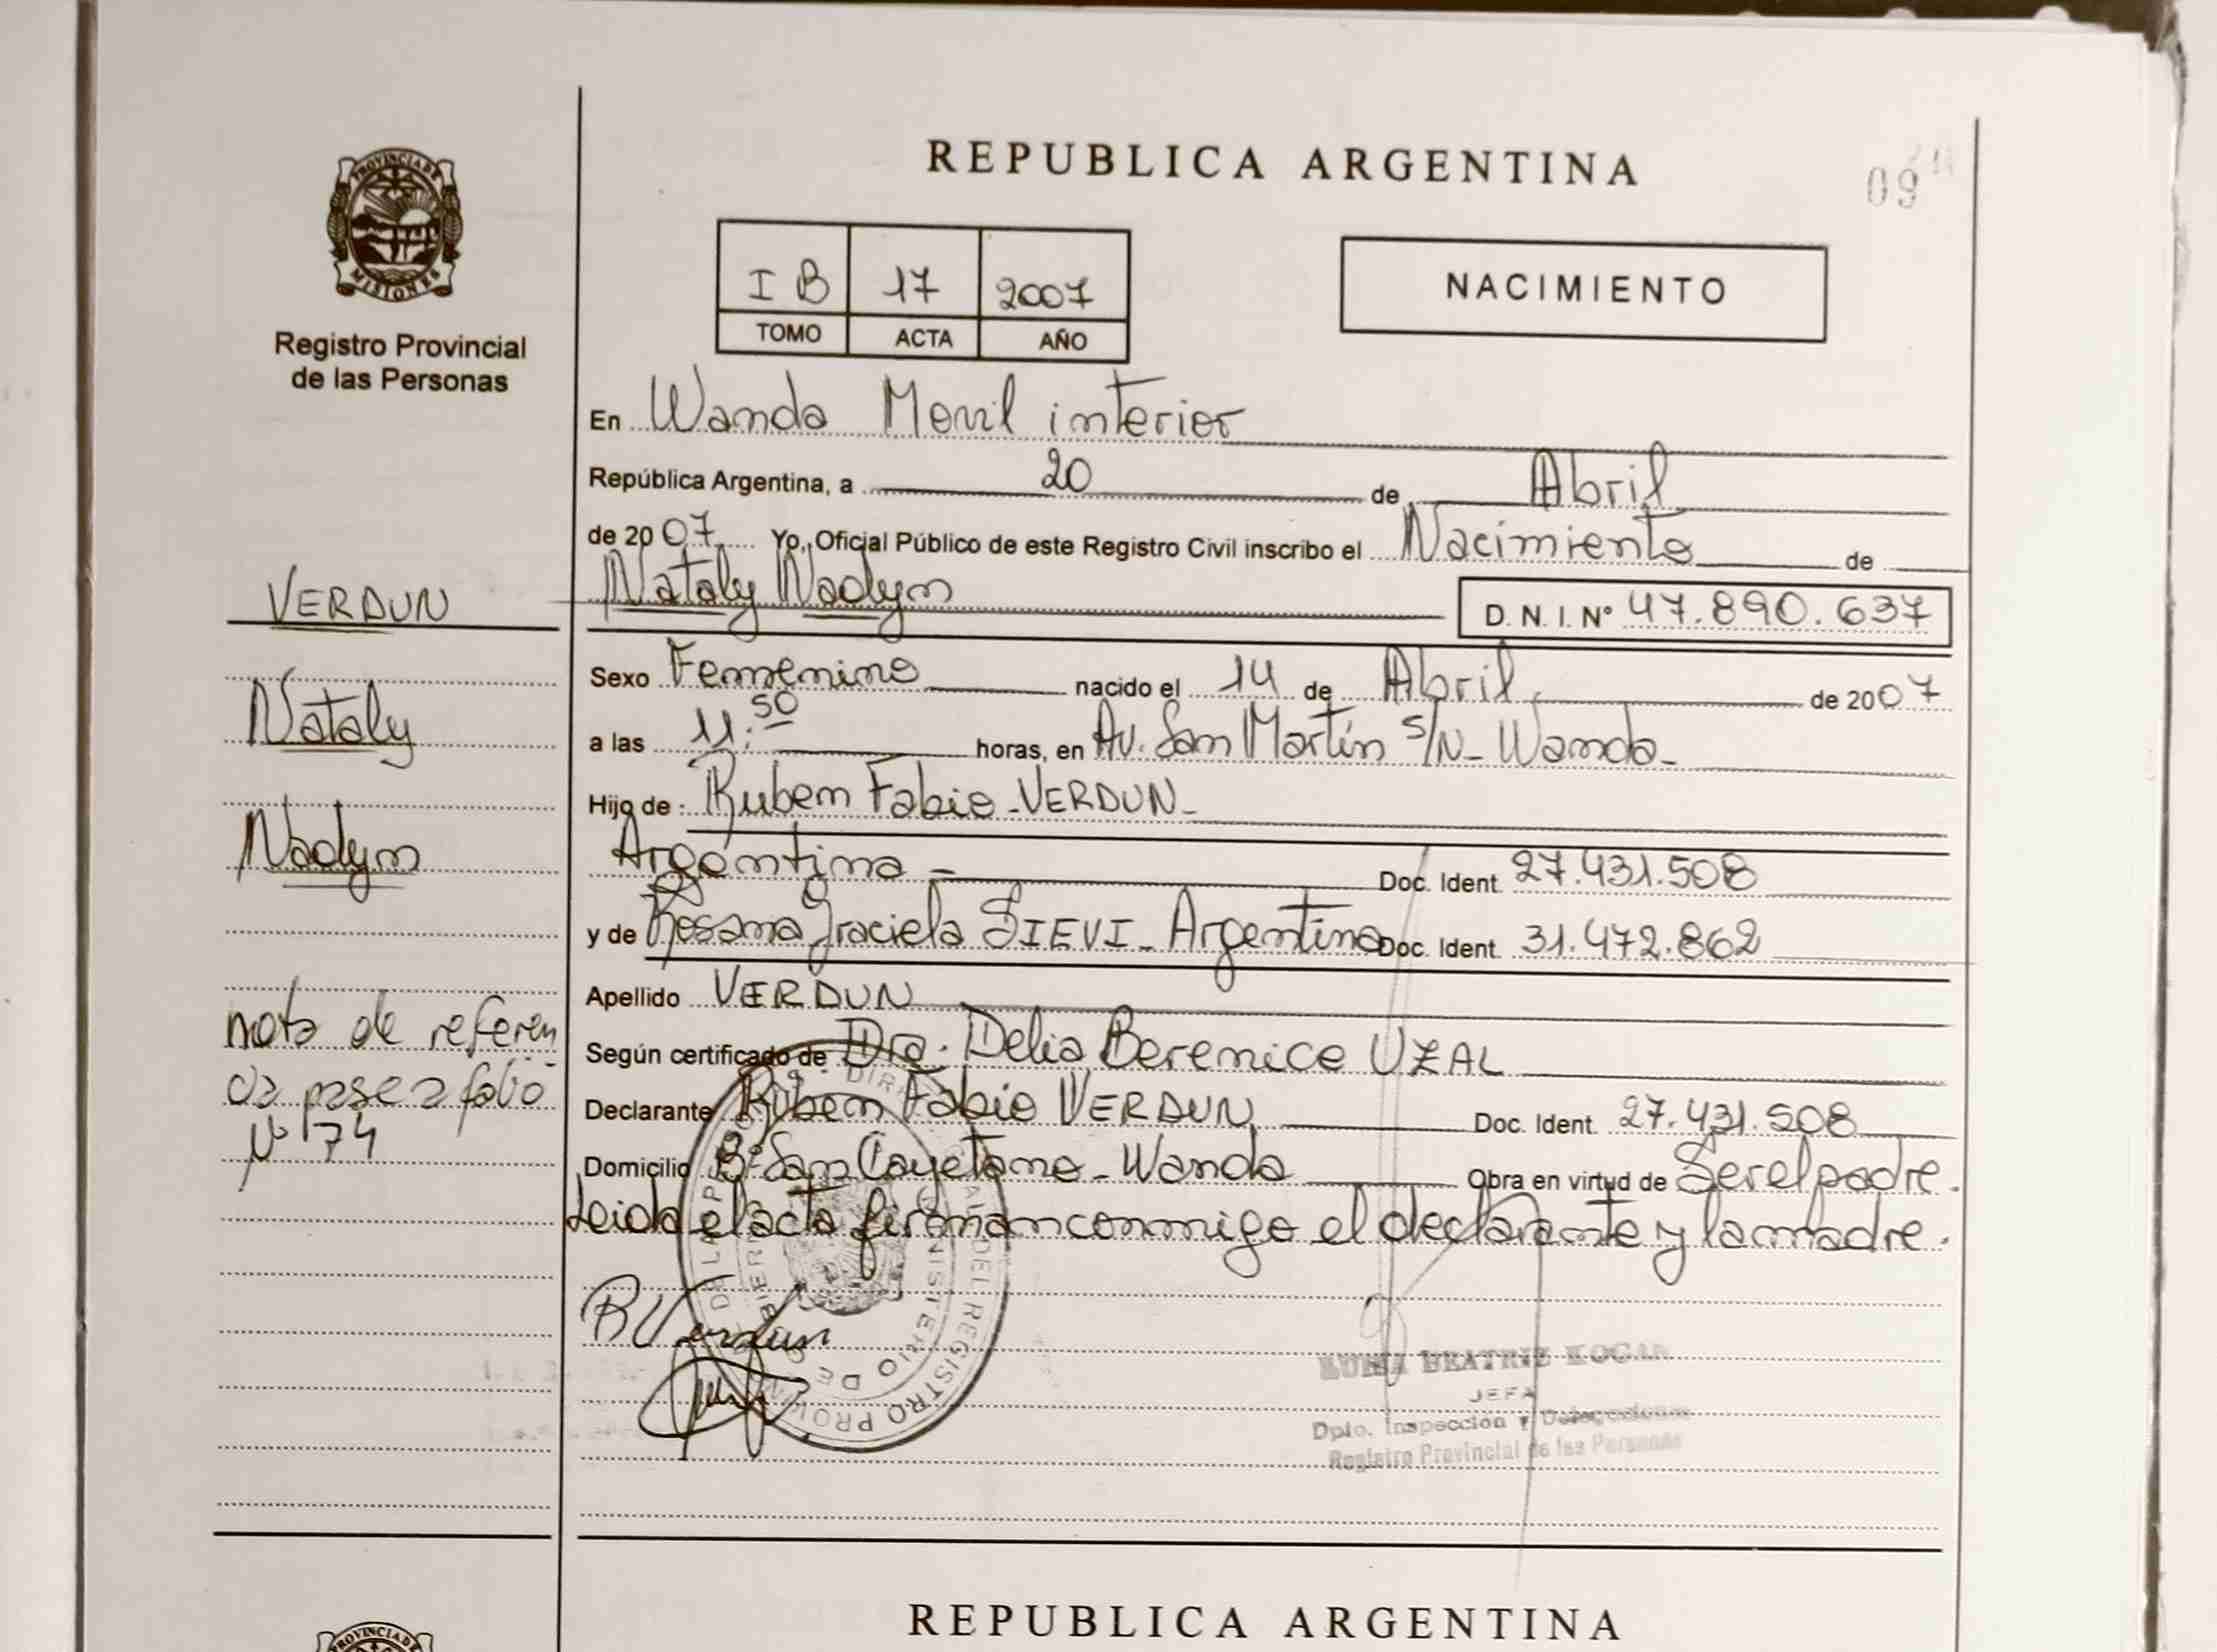 PROVINCIA DE
MISIONES
Registro Provincial
de las Personas
VERDUN
Nataly
Nadym
nota de referen
cia pase a folio
Nº 74
REPUBLICA ARGENTINA
09
I B 17 2007
TOMO ACTA AÑO
NACIMIENTO
En Wanda Movil interior
República Argentina, a 20 de Abril
de 2007 Yo, Oficial Público de este Registro Civil inscribo el Nacimiento de
Nataly Nadym D. N. I. Nº 47.890.637
Sexo Femenino nacido el 14 de Abril de 2007
a las 11:50 horas, en Av. San Martín s/N - Wanda -
Hijo de: Ruben Fabio - VERDUN -
Argentina - Doc. Ident. 27.431.508
y de Rosana Graciela SIEVI - Argentina Doc. Ident. 31.472.862
Apellido VERDUN
Según certificado de Dra. Delia Berenice UZAL
Declarante Ruben Fabio VERDUN Doc. Ident. 27.431.508
Domicilio Bº San Cayetano - Wanda Obra en virtud de Ser el padre.
Leida el acta firman conmigo el declarante y la madre.
RVerdun
BEATRIZ KOGAN
JEFA
Dpto. Inspección y Delegaciones
Registro Provincial de las Personas
REPUBLICA ARGENTINA
PROVINCIA DE